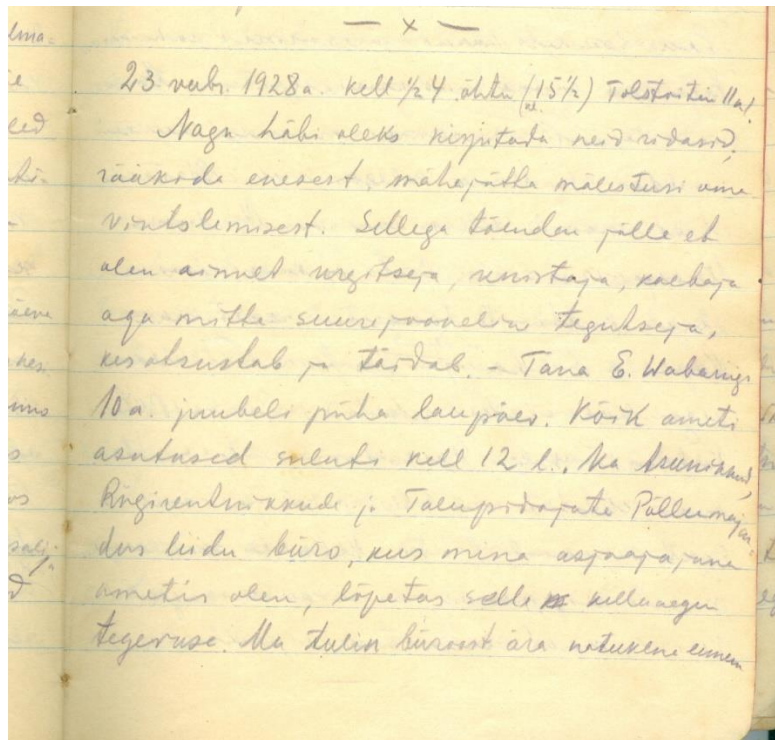 — x —
23 veebr. 1928 a. kell ½ 4 õhtu (15½) Tolstoi tän 11 a/.
Nagu häbi oleks kirjutada neid ridasid,
rääkida enesest mahejätta mälestusi oma
vintslemisest. Sellega tõendan jälle et
olen ainuet urgitseja, unistaja, kaebaja
aga mitte suurejooneline tegutseja,
kes otsustab ja täidab. – Täna E. Wabariigi
10 a. juubeli püha laupäev. Kõik ameti
asutused suleti kell 12 l. Ka Asunikkud,
Riigirentnikkude ja Talupidajate Põllumajan-
dus liidu büro, kus mina asjaajajana
ametis olen, lõpetas selle kellaaegu
tegevuse. Ma tulin büroost ära natukene ennem
lma-
ie
eed
-
äeva
nus
s
os
d